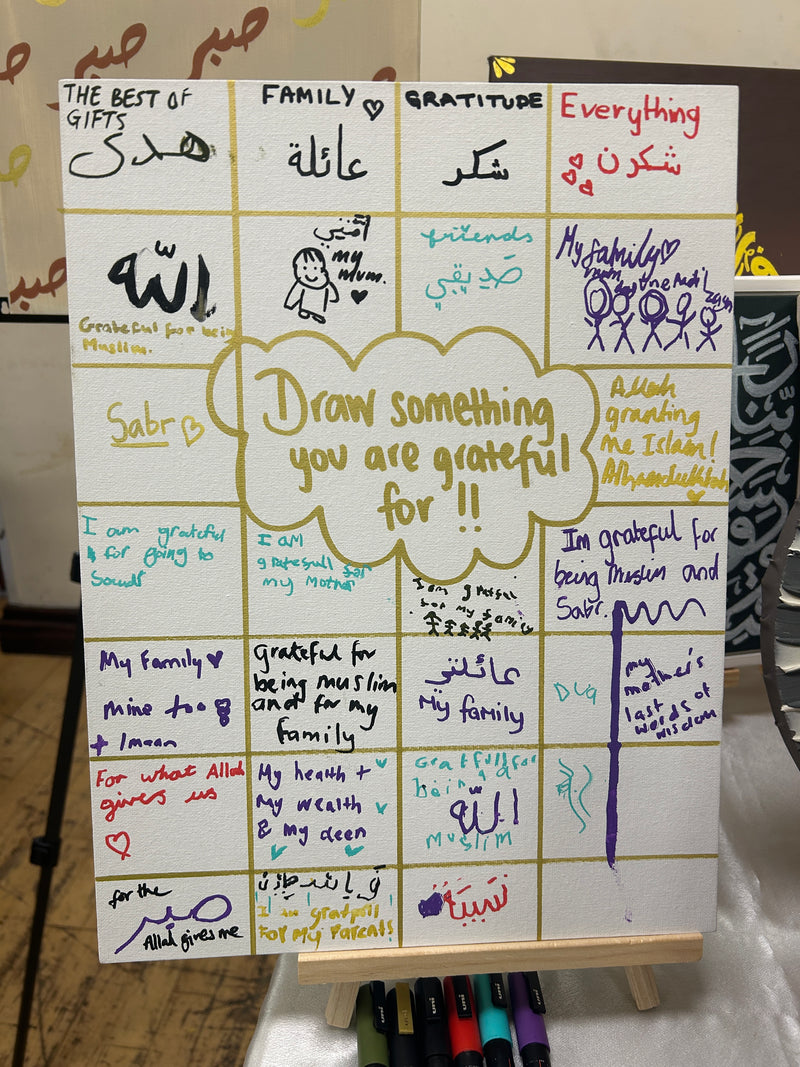 صبر
صبر
صبر
THE BEST OF
GIFTS
هدى
FAMILY
عائلة
GRATITUDE
شكر
Everything
شكرن
الله
Grateful for being
Muslim.
my
mum.
friends
صَدِيقِي
My family
Sabr
Draw something
you are grateful
for !!
Allah
granting
me Islam!
Alhamdulillah
I am grateful
for going to
I AM
gratefull for
my Mother
I am grateful
for my family
Im grateful for
being Muslim and
Sabr.
My Family
mine too
+ Imaan
Grateful for
being muslim
and for my
family
عائلتي
My family
Dua
my
mother's
last
words of
wisdom
For what Allah
gives us
My health +
My wealth
& my deen
Gratfull for
being a
الله
Muslim
for the
صبر
Allah gives me
I am gratfull
For My Parents